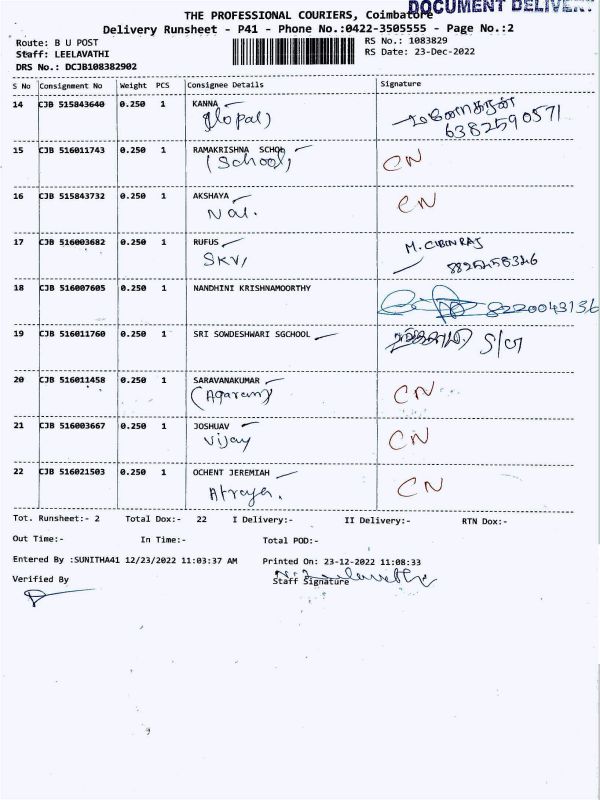 DOCUMENT DELIVERY
THE PROFESSIONAL COURIERS, Coimbatore
Delivery Runsheet - P41 - Phone No.:0422-3505555 - Page No.:2
Route: B U POST RS No.: 1083829
Staff: LEELAVATHI RS Date: 23-Dec-2022
DRS No.: DCJB108382902
S No Consignment No Weight PCS Consignee Details Signature
14 CJB 515843640 0.250 1 KANNA மனோகரன்
(Gopal) 6382590571
15 CJB 516011743 0.250 1 RAMAKRISHNA SCHOO
(School) CN
16 CJB 515843732 0.250 1 AKSHAYA CN
Nal.
17 CJB 516003682 0.250 1 RUFUS M. CIBINRAJ
SKV, 8825458346
18 CJB 516007605 0.250 1 NANDHINI KRISHNAMOORTHY
8220043136
19 CJB 516011760 0.250 1 SRI SOWDESHWARI SGCHOOL
20 CJB 516011458 0.250 1 SARAVANAKUMAR
(Agaram) CN
21 CJB 516003667 0.250 1 JOSHUAV
Vijay CN
22 CJB 516021503 0.250 1 OCHENT JEREMIAH
Atreya. CN
Tot. Runsheet:- 2 Total Dox:- 22 I Delivery:- II Delivery:- RTN Dox:-
Out Time:- In Time:- Total POD:-
Entered By :SUNITHA41 12/23/2022 11:03:37 AM Printed On: 23-12-2022 11:08:33
Verified By Staff Signature